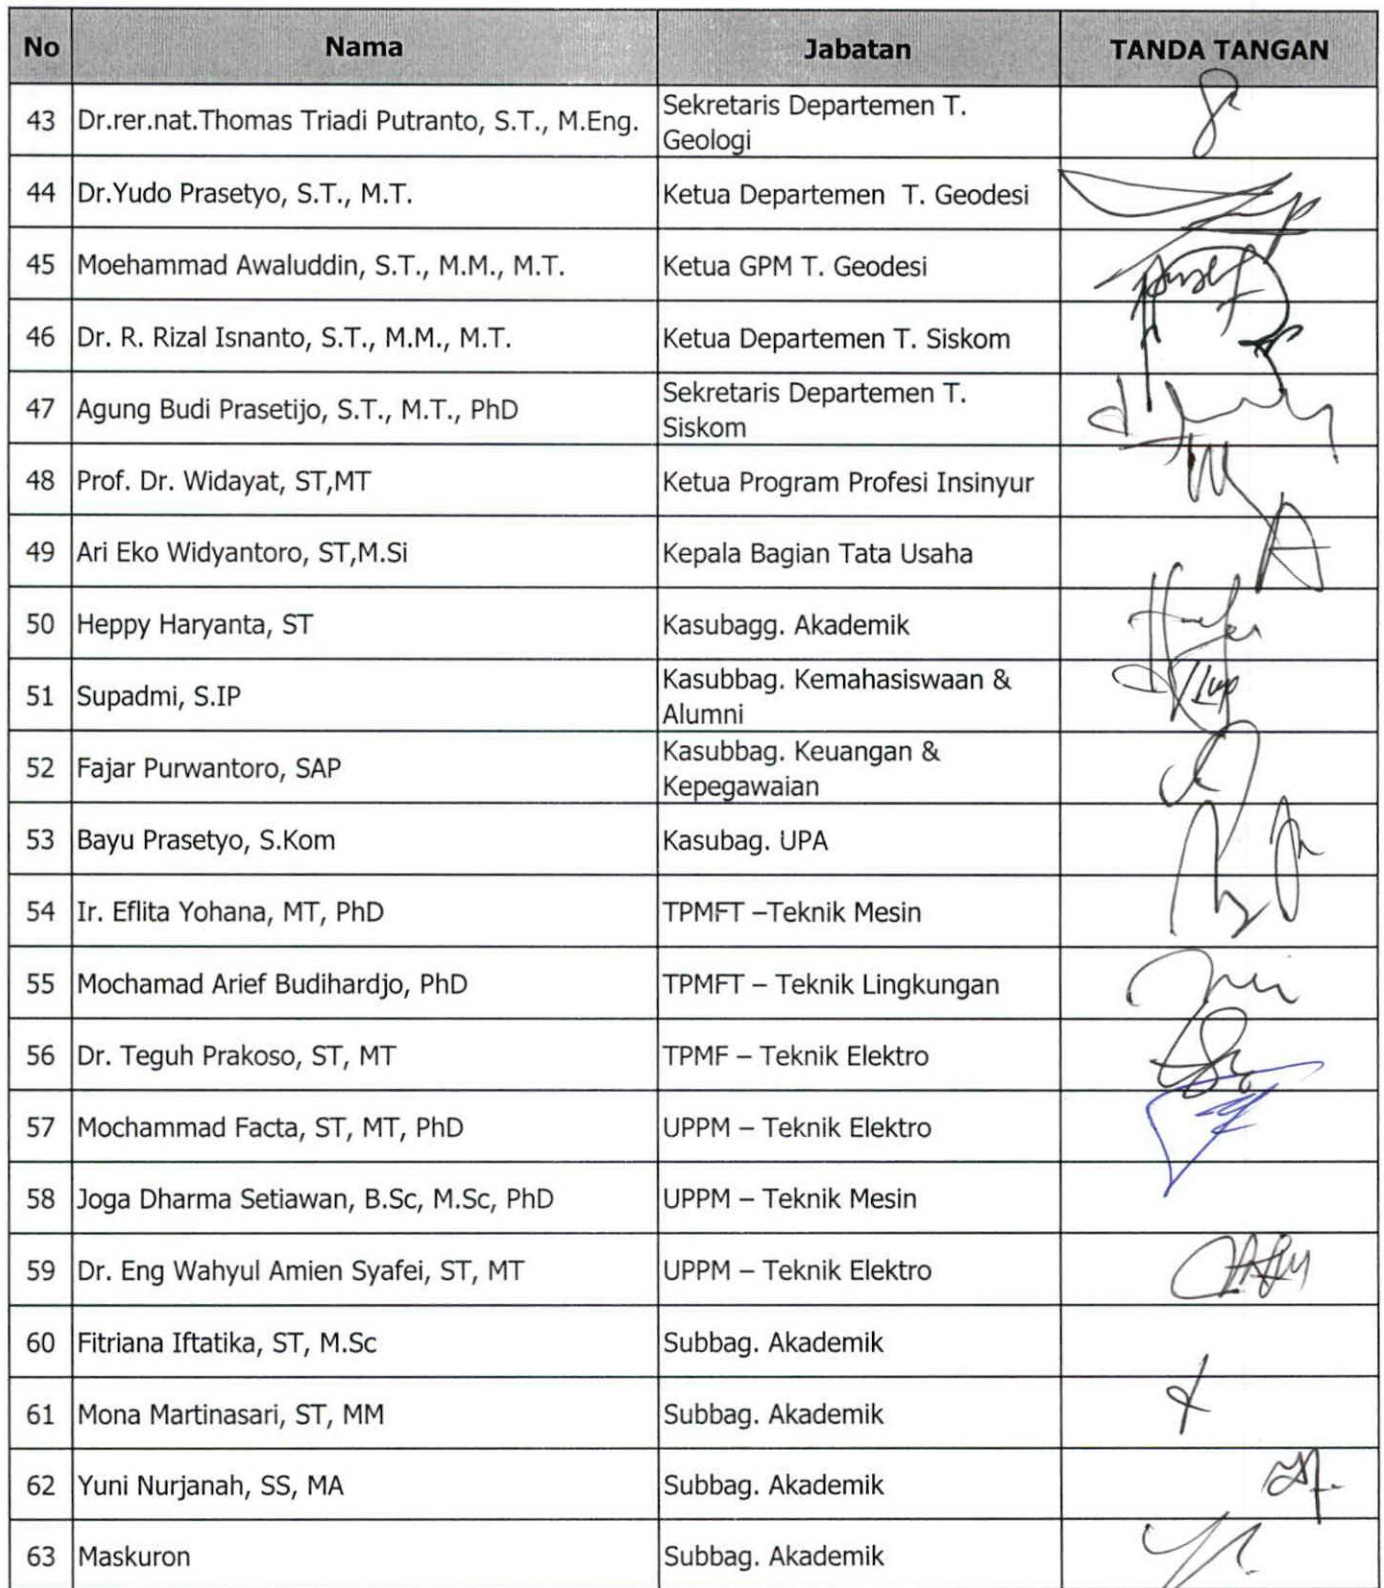 No Nama Jabatan TANDA TANGAN
43 Dr.rer.nat.Thomas Triadi Putranto, S.T., M.Eng. Sekretaris Departemen T.
Geologi
44 Dr.Yudo Prasetyo, S.T., M.T. Ketua Departemen T. Geodesi
45 Moehammad Awaluddin, S.T., M.M., M.T. Ketua GPM T. Geodesi
46 Dr. R. Rizal Isnanto, S.T., M.M., M.T. Ketua Departemen T. Siskom
47 Agung Budi Prasetijo, S.T., M.T., PhD Sekretaris Departemen T.
Siskom
48 Prof. Dr. Widayat, ST,MT Ketua Program Profesi Insinyur
49 Ari Eko Widyantoro, ST,M.Si Kepala Bagian Tata Usaha
50 Heppy Haryanta, ST Kasubagg. Akademik
51 Supadmi, S.IP Kasubbag. Kemahasiswaan &
Alumni
52 Fajar Purwantoro, SAP Kasubbag. Keuangan &
Kepegawaian
53 Bayu Prasetyo, S.Kom Kasubag. UPA
54 Ir. Eflita Yohana, MT, PhD TPMFT –Teknik Mesin
55 Mochamad Arief Budihardjo, PhD TPMFT – Teknik Lingkungan
56 Dr. Teguh Prakoso, ST, MT TPMF – Teknik Elektro
57 Mochammad Facta, ST, MT, PhD UPPM – Teknik Elektro
58 Joga Dharma Setiawan, B.Sc, M.Sc, PhD UPPM – Teknik Mesin
59 Dr. Eng Wahyul Amien Syafei, ST, MT UPPM – Teknik Elektro
60 Fitriana Iftatika, ST, M.Sc Subbag. Akademik
61 Mona Martinasari, ST, MM Subbag. Akademik
62 Yuni Nurjanah, SS, MA Subbag. Akademik
63 Maskuron Subbag. Akademik